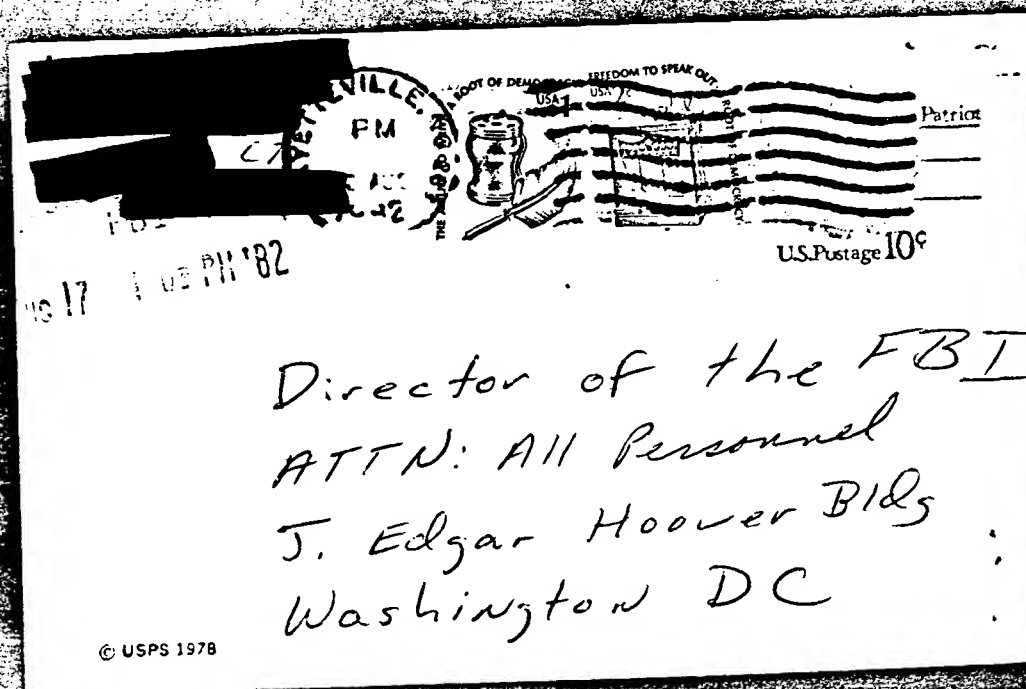 YETTEVILLE.
PM
AUG
A ROOT OF DEMOCRACY
USA 1
FREEDOM TO SPEAK OUT
USA
A ROOT OF DEMOCRACY
Patriot
U.S.Postage 10¢
FBI
17 PM '82
Director of the FBI
ATTN: All Personnel
J. Edgar Hoover Bldg
Washington DC
© USPS 1978